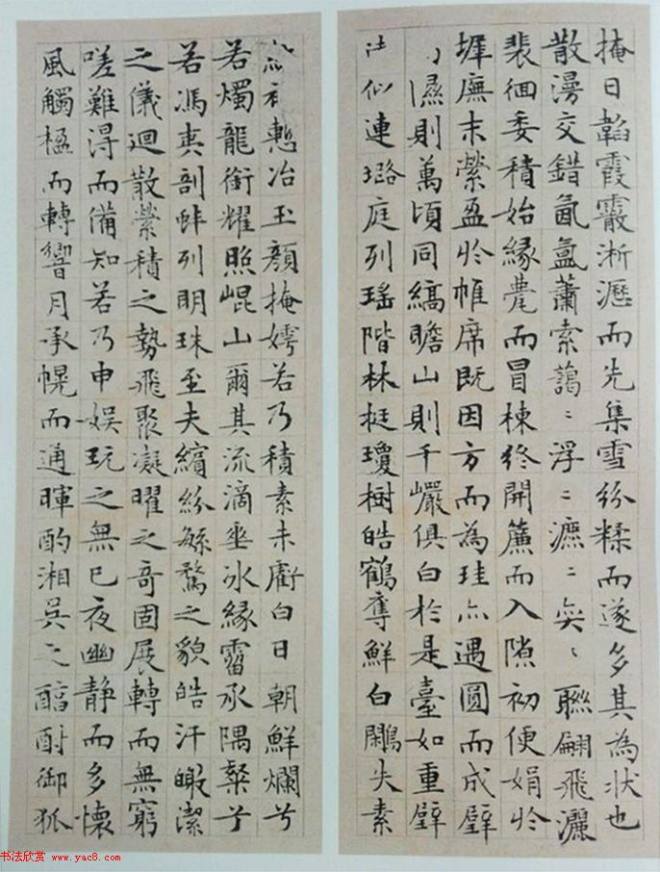 掩日韜霞霰淅瀝而先集雪紛糅而遂多其為狀也
散漫交錯氤氳蕭索藹〻浮〻瀌〻奕〻聯翩飛灑
裴徊委積始緣甍而冒棟終開簾而入隙初便娟於
墀廡末縈盈於帷席既因方而為珪亦遇圓而成璧
隰則萬頃同縞瞻山則千巖俱白於是臺如重璧
似連璐庭列瑤階林挺瓊樹皓鶴奪鮮白鷳失素
慙冶玉顏掩嫮若乃積素未虧白日朝鮮爛兮
若燭龍銜耀照崐山爾其流滴垂冰緣霤承隅粲兮
若馮夷剖蚌列明珠至夫繽紛繁騖之貌皓汗皦潔
之儀迴散縈積之勢飛聚凝曜之奇固展轉而無窮
嗟難得而備知若乃申娛玩之無已夜幽靜而多懷
風觸楹而轉響月承幌而通暉酌湘吳之醇酎御狐
书法欣赏 www.yac8.com